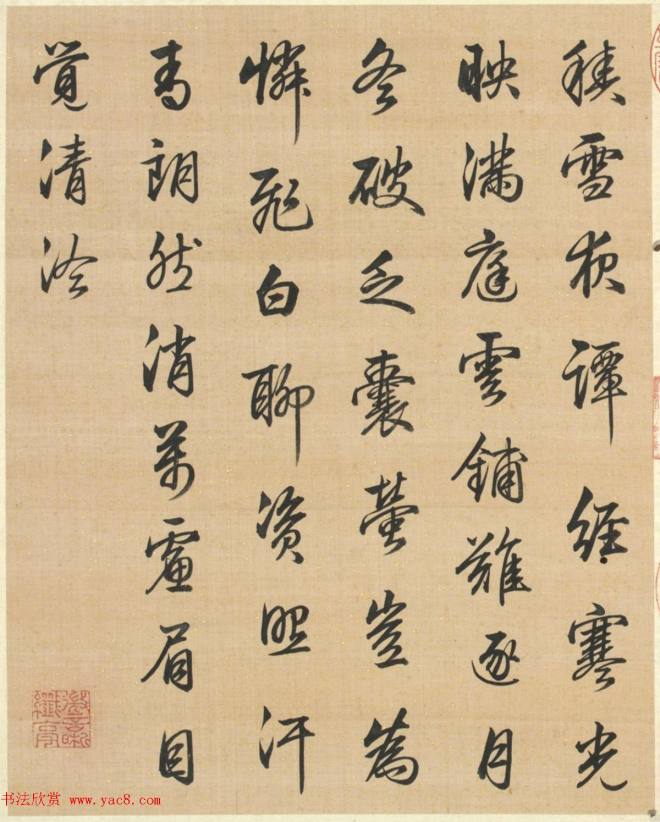 積雪夜譚經寒光
映滿庭雲鋪難逐月
冬破乏囊螢豈為
憐飛白聊資照汗
青朗然消萬慮眉目
覺清泠
书法欣赏 www.yac8.com